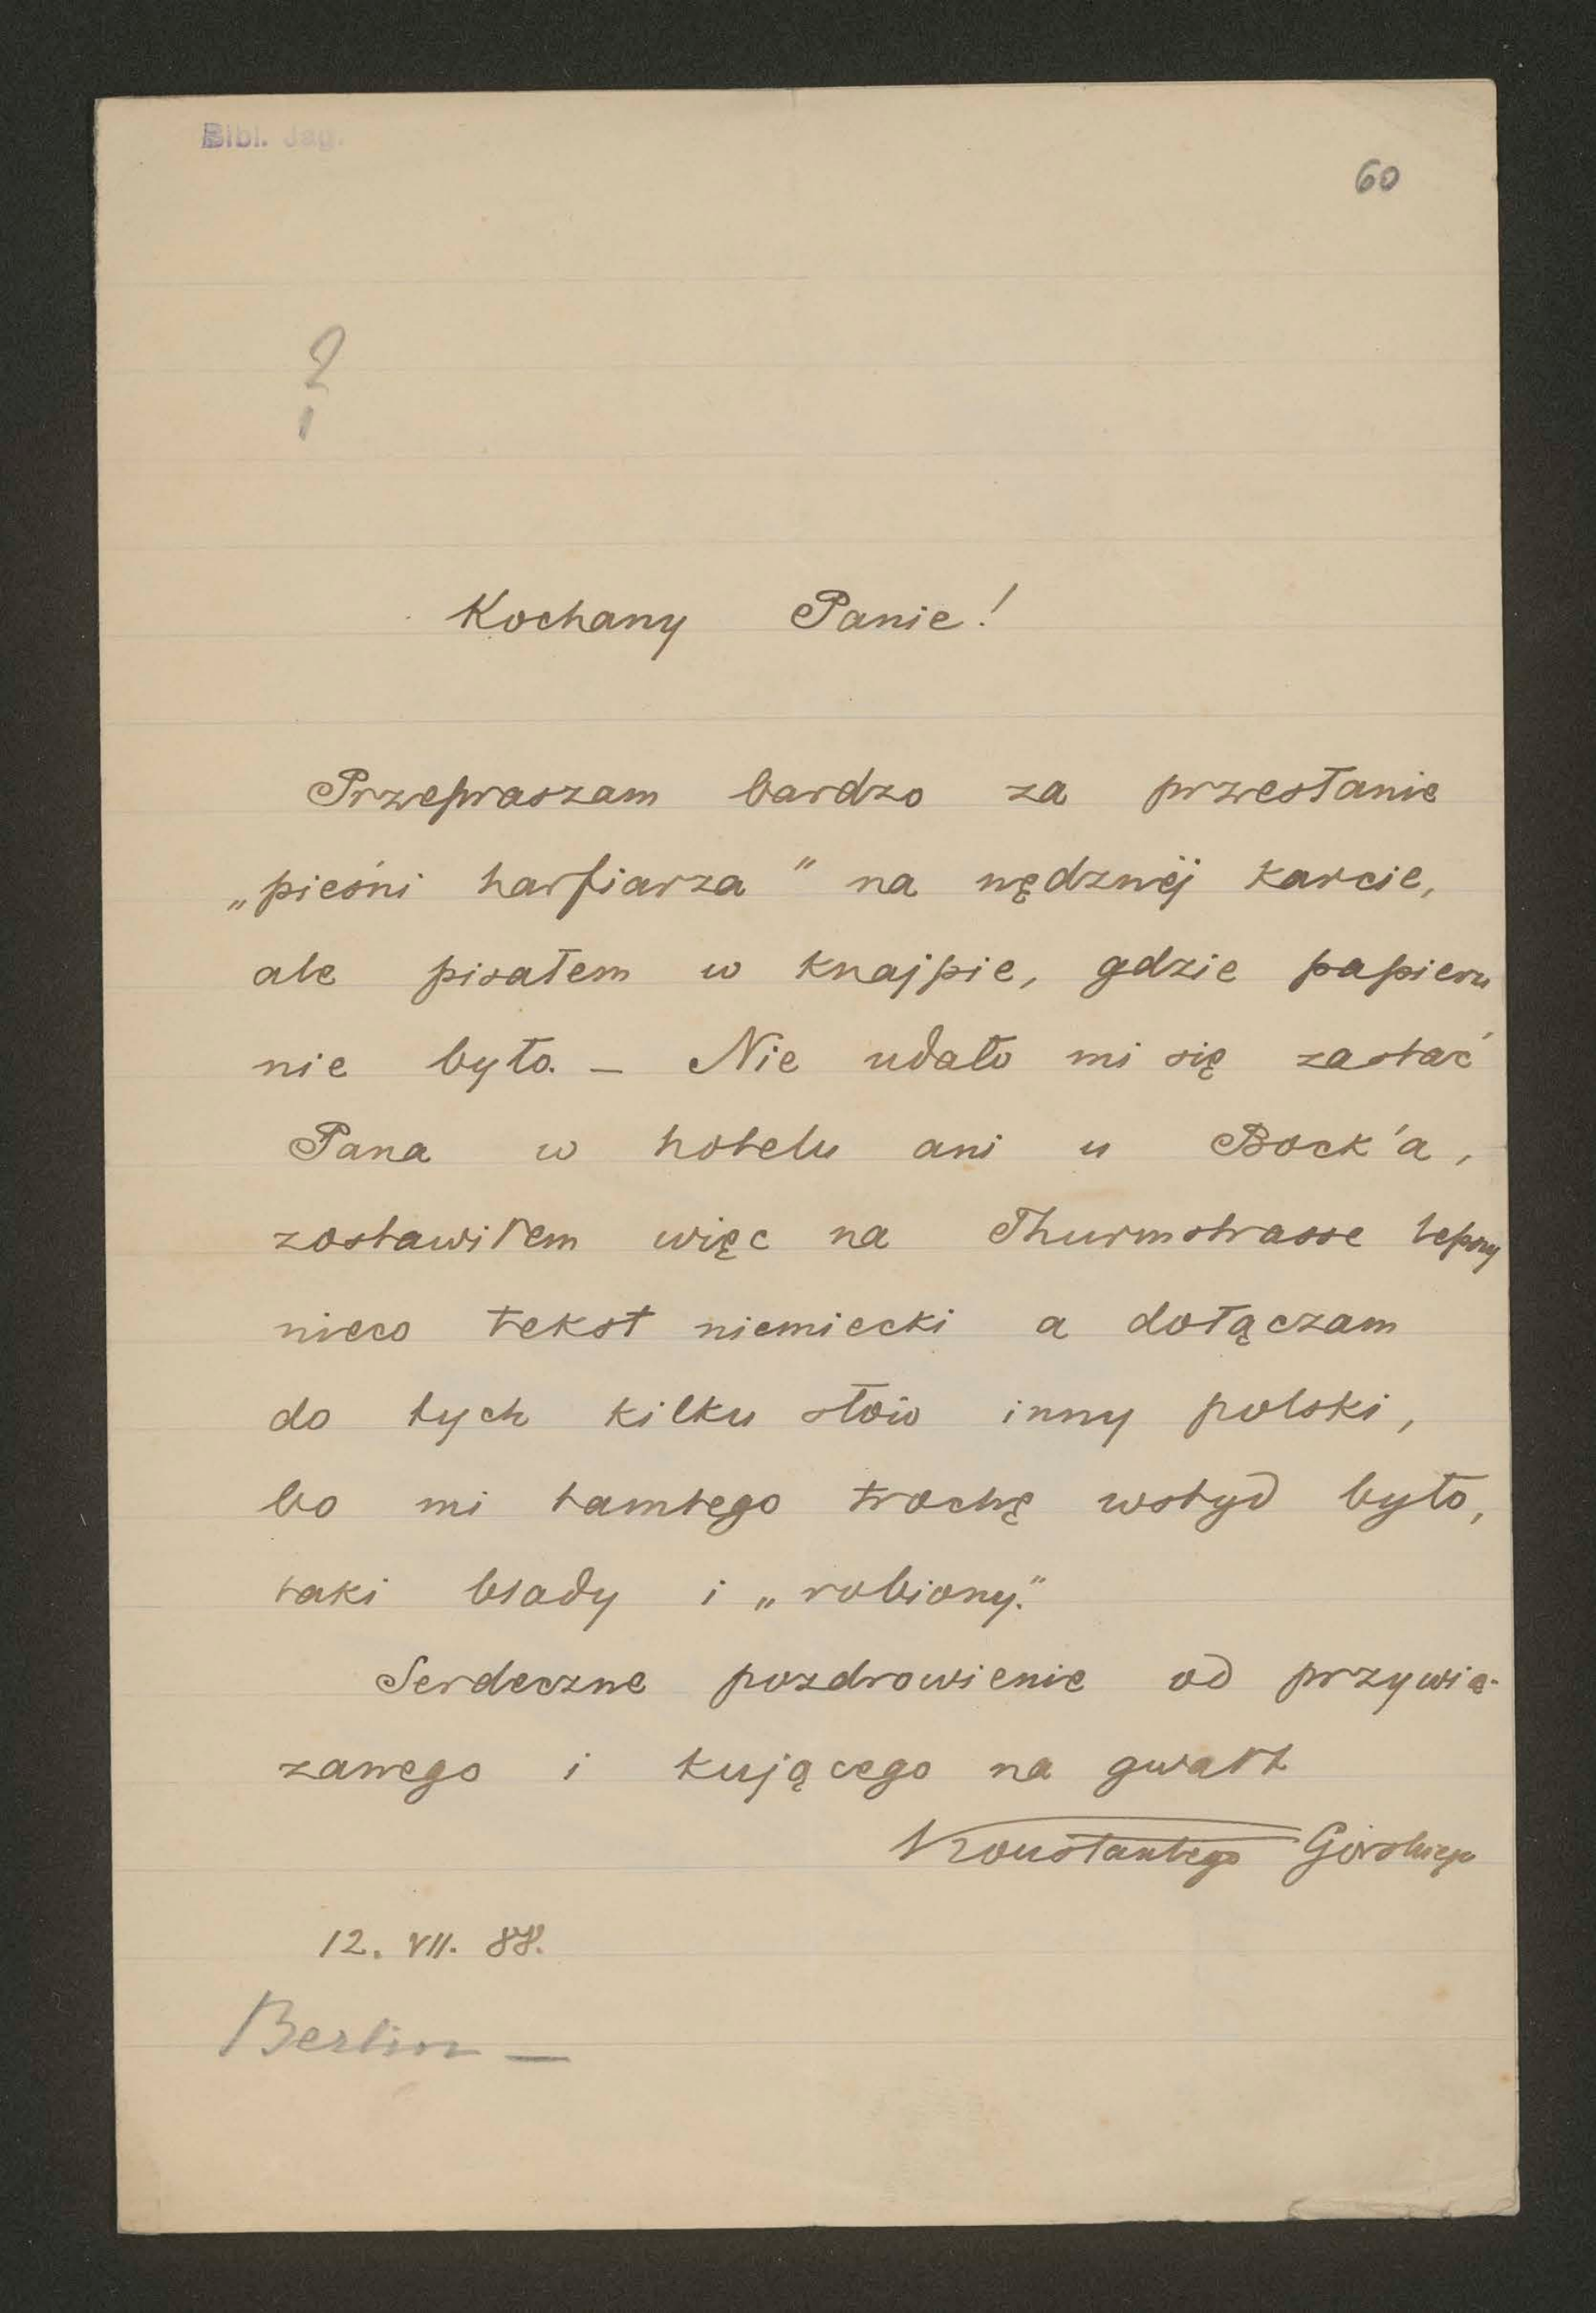 Bibl. Jag.
60
?
Kochany Panie!
Przepraszam bardzo za przesłanie
„pieśni harfiarza" na nędznéj karcie,
ale pisałem w knajpie, gdzie papieru
nie było. – Nie udało mi się zastać
Pana w hotelu ani u Bock'a,
zostawiłem więc na Thurmstrasse lepszy
nieco tekst niemiecki a dołączam
do tych kilku słów inny polski,
bo mi tamtego trochę wstyd było,
taki blady i „robiony."
Serdeczne pozdrowienie od przywią-
zanego i kującego na gwałt
Konstantego Górskiego
12. VII. 88.
Berlin –